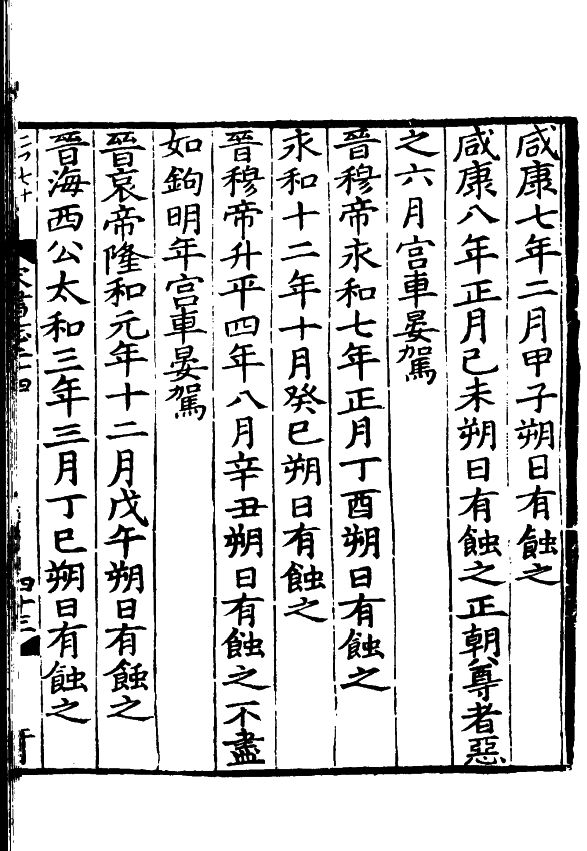 咸康七年二月甲子朔日有蝕之
咸康八年正月己未朔日有蝕之正朝尊者惡
之六月宮車晏駕
晉穆帝永和七年正月丁酉朔日有蝕之
永和十二年十月癸巳朔日有蝕之
晉穆帝升平四年八月辛丑朔日有蝕之不盡
如鉤明年宮車晏駕
晉哀帝隆和元年十二月戊午朔日有蝕之
晉海西公太和三年三月丁巳朔日有蝕之
宋書志二十四
四十三